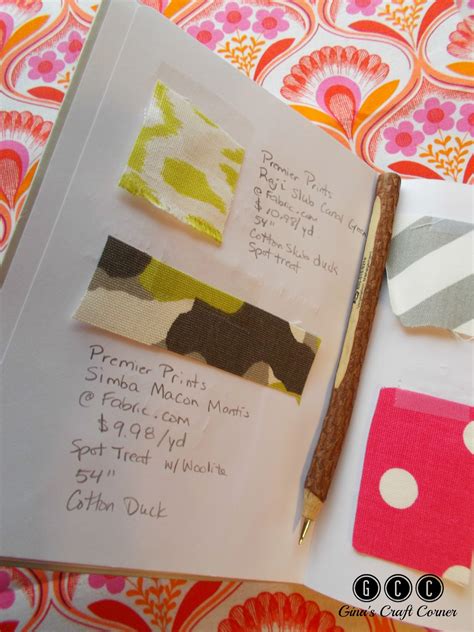 Premier Prints
Raji Slub Canal Green
@ Fabric.com
$10.98/yd
54"
Cotton Slub duck
Spot treat
Premier Prints
Simba Macon Mantis
@ Fabric.com
$9.98/yd
Spot Treat w/ Woolite
54"
Cotton Duck
GCC
Gina's Craft Corner